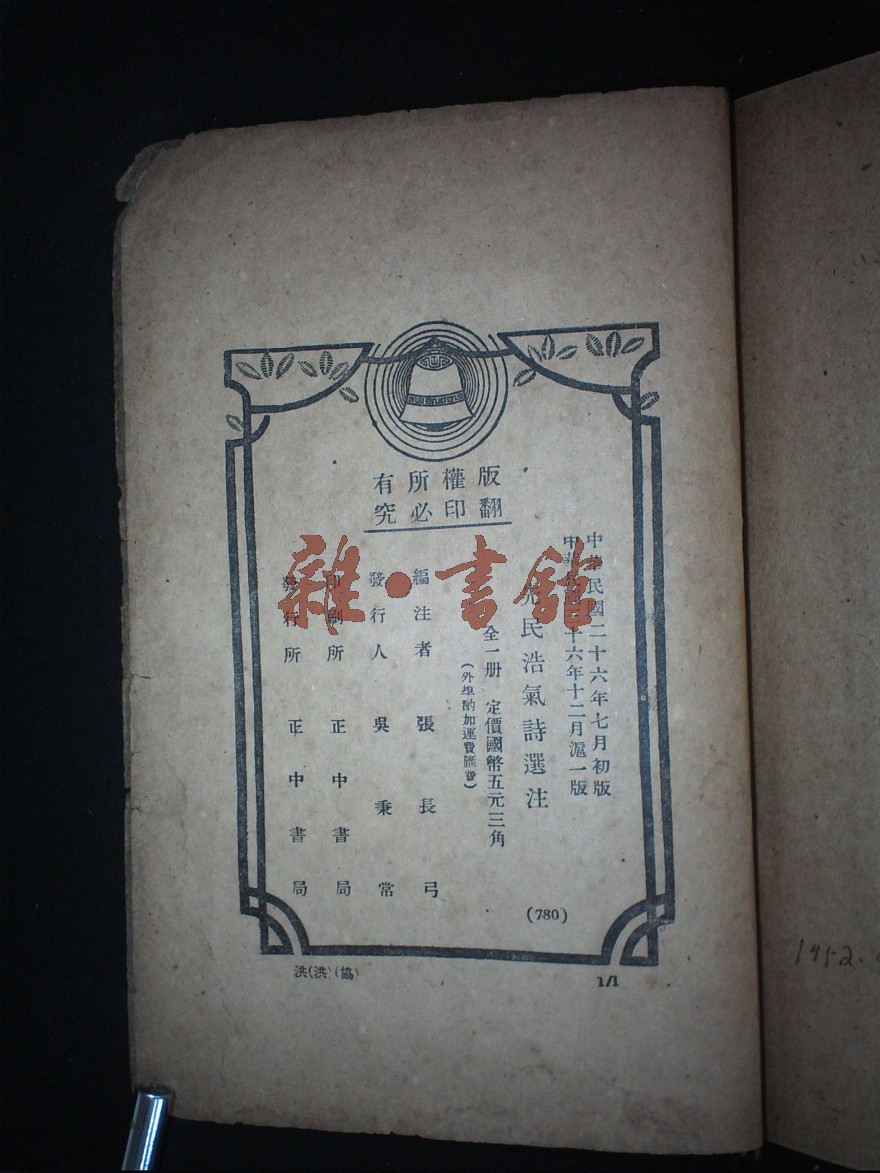 版權所有
翻印必究
中華民國二十六年七月初版
中華民國三十六年十二月滬一版
先民浩氣詩選注
全一册 定價國幣五元三角
(外埠酌加運費匯費)
編注者 張長弓
發行人 吳秉常
印刷所 正中書局
發行所 正中書局
(780)
洪(洪)(協)
1/1
雜·書館
1952.